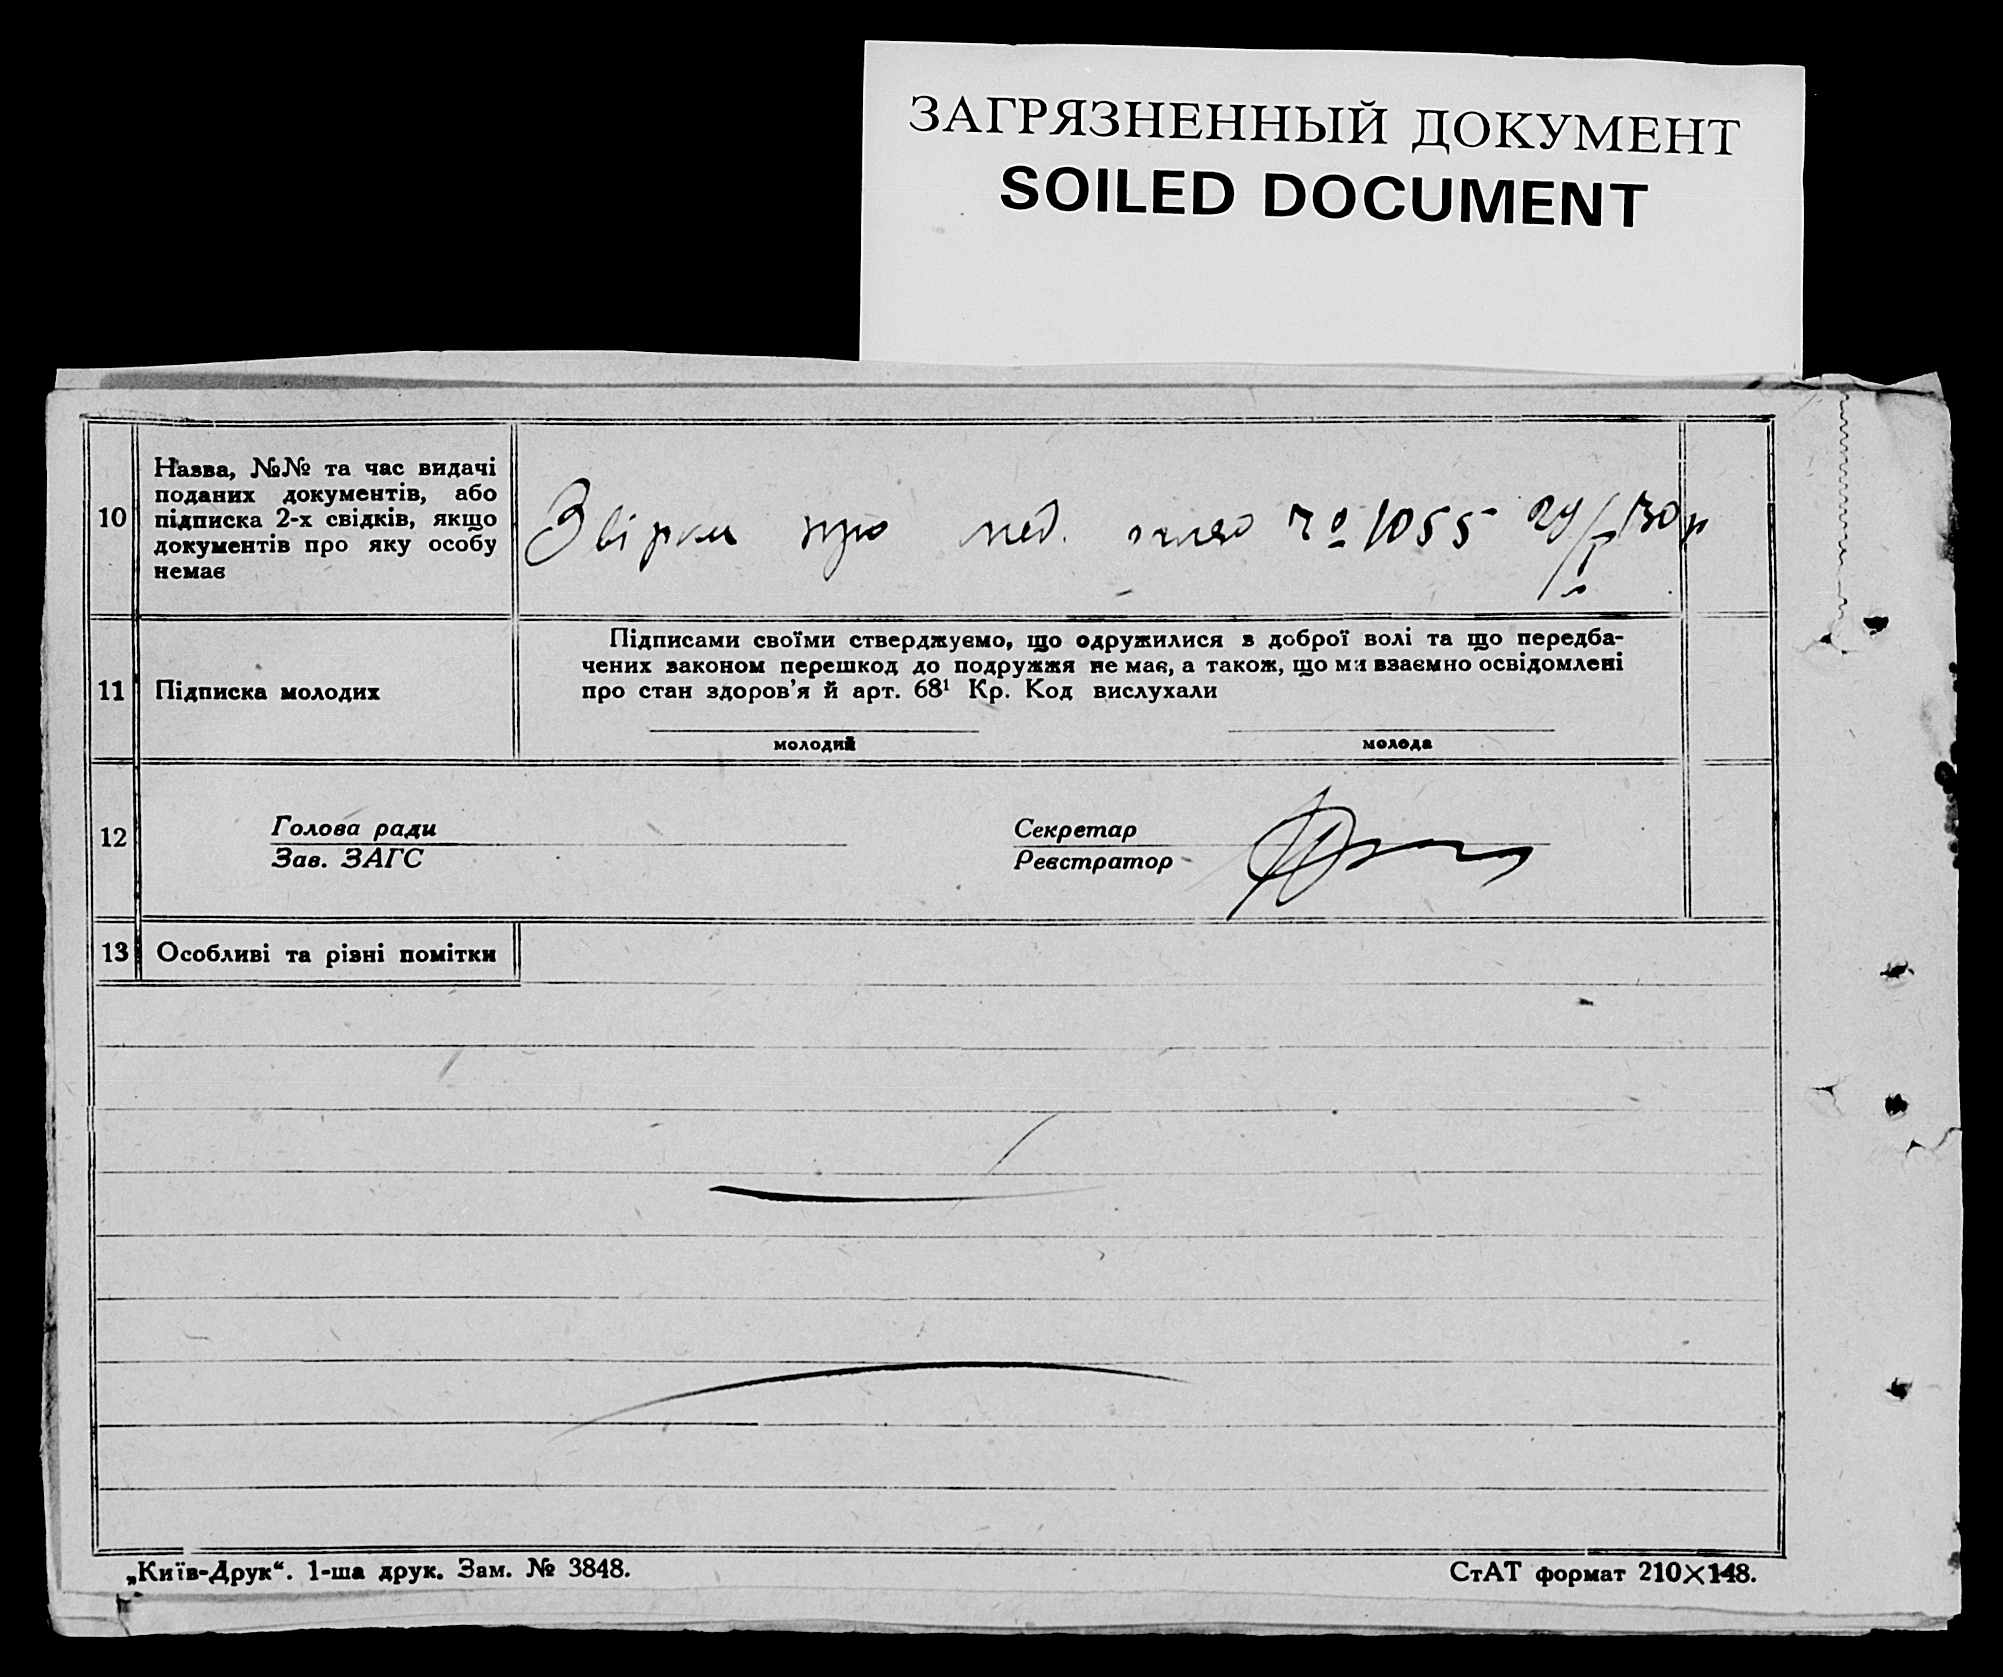 ЗАГРЯЗНЕННЫЙ ДОКУМЕНТ
SOILED DOCUMENT
10
Назва, №№ та час видачі
поданих документів, або
підписка 2-х свідків, якщо
документів про яку особу
немає
про мед. № 1055
11
Підписка молодих
Підписами своїми стверджуємо, що одружилися з доброї волі та що передба-
чених законом перешкод до подружжя не має, а також, що ми взаємно освідомлені
про стан здоров'я й арт. 68¹ Кр. Код вислухали
молодий
молода
12
Голова ради
Зав. ЗАГС
Секретар
Реєстратор
13
Особливі та різні помітки
„Київ-Друк“. 1-ша друк. Зам. № 3848.
СтАТ формат 210×148.